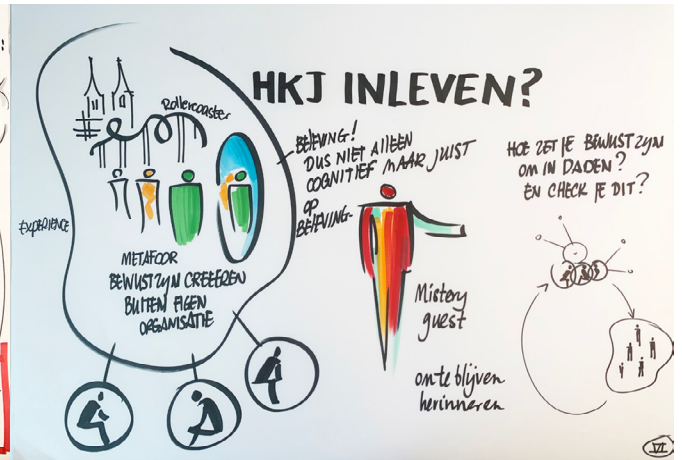 HKJ INLEVEN?
Rollercoaster
EXPERIENCE
METAFOOR
BEWUSTZIJN CREËEREN
BUITEN EIGEN
ORGANISATIE
BELEVING!
DUS NIET ALLEEN
COGNITIEF MAAR JUIST
OP
BELEVING-
Mistery
guest
om te blijven
herinneren
HOE ZET JE BEWUSTZIJN
OM IN DADEN?
EN CHECK JE DIT?
VI